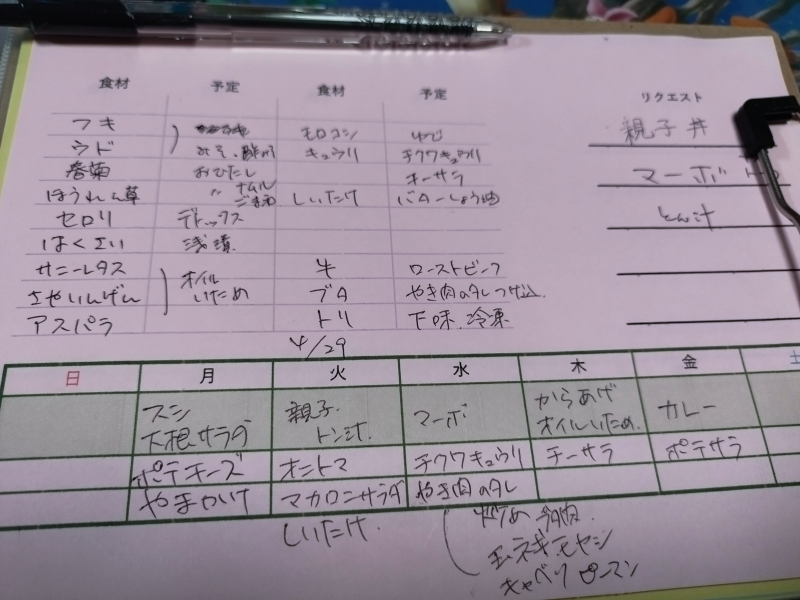 食材 予定 食材 予定 リクエスト
フキ モロコシ ゆで 親子丼
ウド みそ、酢 キュウリ チクワキュウリ
春菊 おひたし チーサラ マーボ
ほうれん草 〃 ナムル ごま和 しいたけ バターしょう油
セロリ デトックス とん汁
はくさい 浅漬
サニーレタス オイル いため 牛 ローストビーフ
さやいんげん ブタ やき肉のタレつけ込
アスパラ トリ 下味、冷凍
4/29
日 月 火 水 木 金 土
スシ 親子、 マーボ からあげ カレー
大根サラダ トン汁 オイルいため
ポテチーズ オニトマ チクワキュウリ チーサラ ポテサラ
やまかけ マカロニサラダ やき肉のタレ
しいたけ 炒め
玉ネギ モヤシ
キャベツ ピーマン